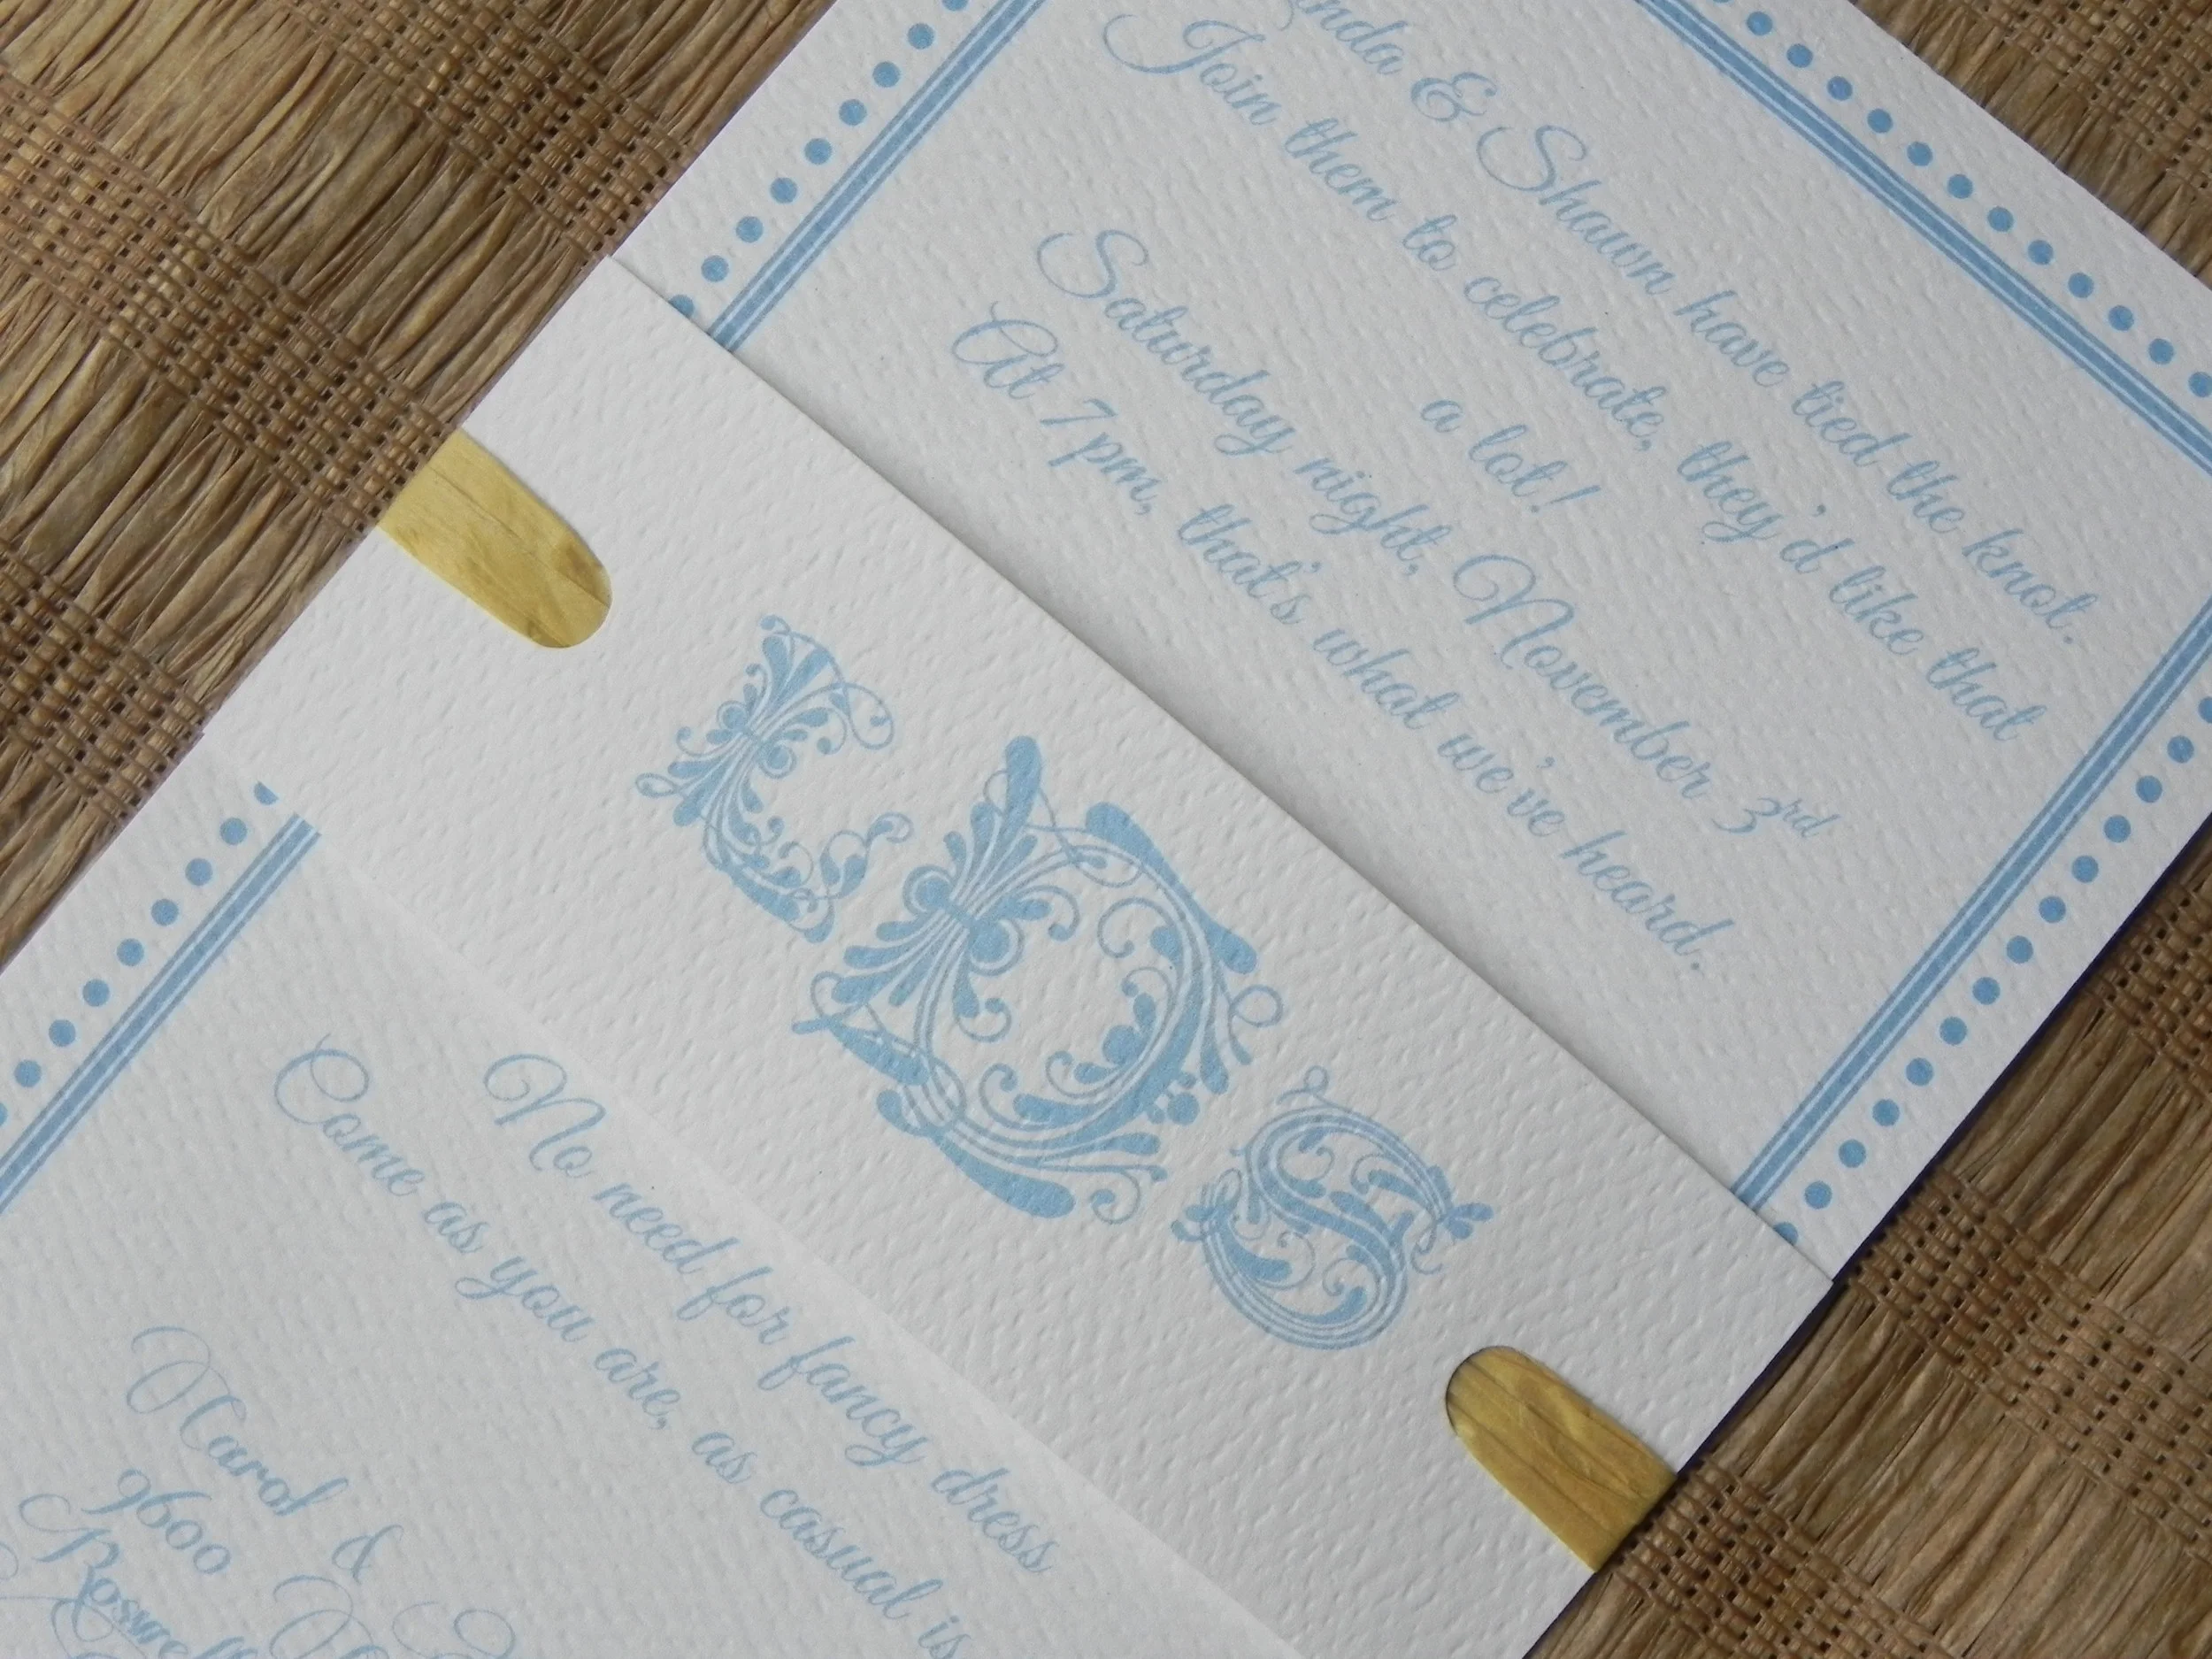 nda & Shawn have tied the knot.
Join them to celebrate, they'd like that
a lot!
Saturday night, November 3rd
At 7 pm, that's what we've heard.
L D S
No need for fancy dress
Come as you are, as casual is
Carol &
9600
Roswell